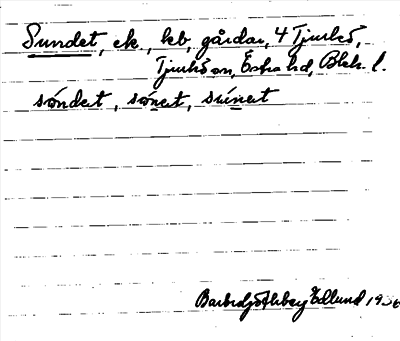 Sundet, ek., kb, gårdar, 4 Tjurkö,
Tjurkö sn, Östra hd, Blek. l.
sóndet, sónet, súnet
Edlund 1936